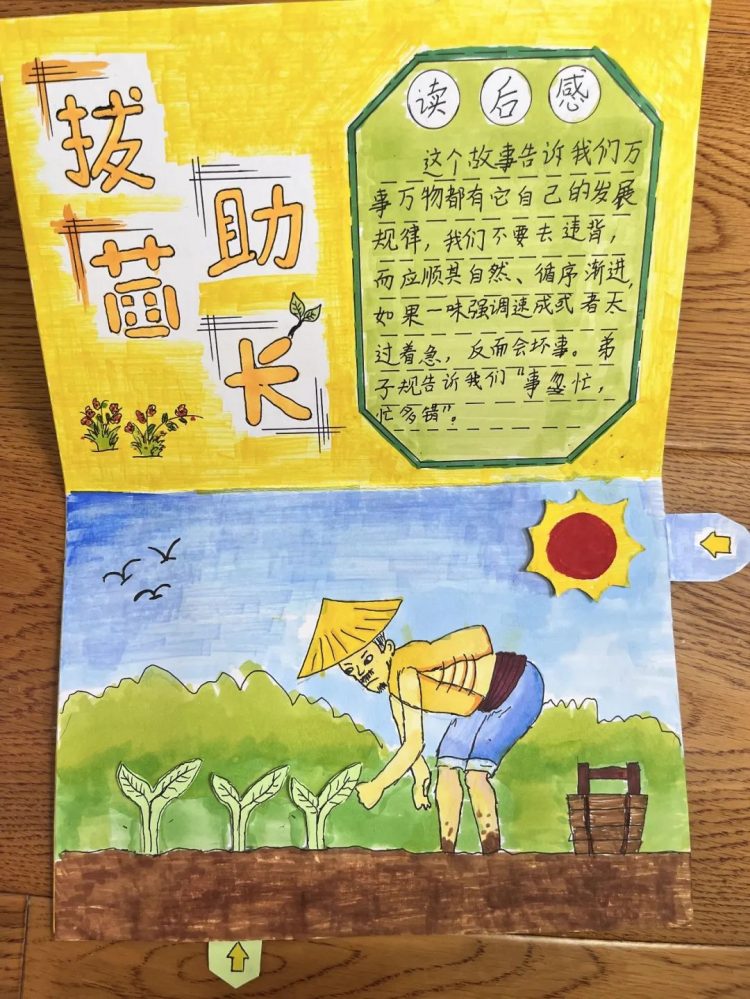 拔苗助长
读后感
这个故事告诉我们万
事万物都有它自己的发展
规律，我们不要去违背，
而应顺其自然、循序渐进，
如果一味强调速成或者太
过着急，反而会坏事。弟
子规告诉我们“事忽忙，
忙多错”。